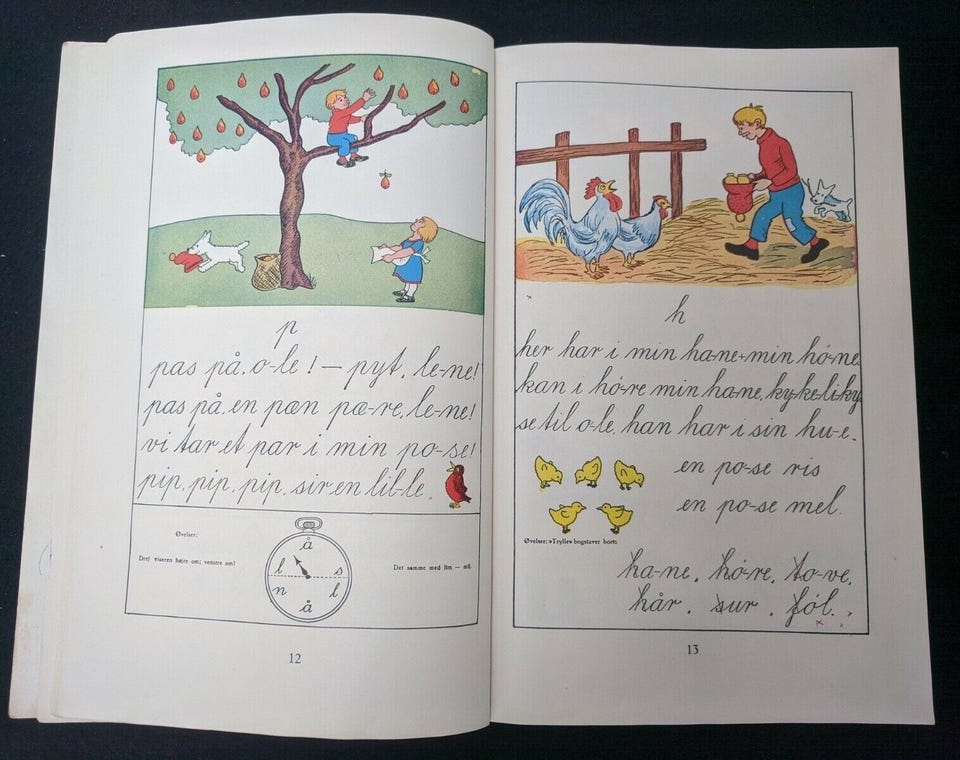 p
pas på, o-le! — pyt, le-ne!
pas på, en pæn pæ-re, le-ne!
vi tar et par i min po-se!
pip, pip, pip, sir en lil-le.
Øvelser:
Drej viseren højre om; venstre om!
Det samme med ſtm — mſl.
å
l s
n l
å
12
h
her har i min ha-ne + min hö-ne.
kan i hö-re min ha-ne, ky-ke-li-ky
se til o-le, han har i sin hu-e.
en po-se ris
en po-se mel.
Øvelser: »Trylle« bogstaver bort:
ha-ne, hö-re, to-ve,
hår, sur, föl.
13